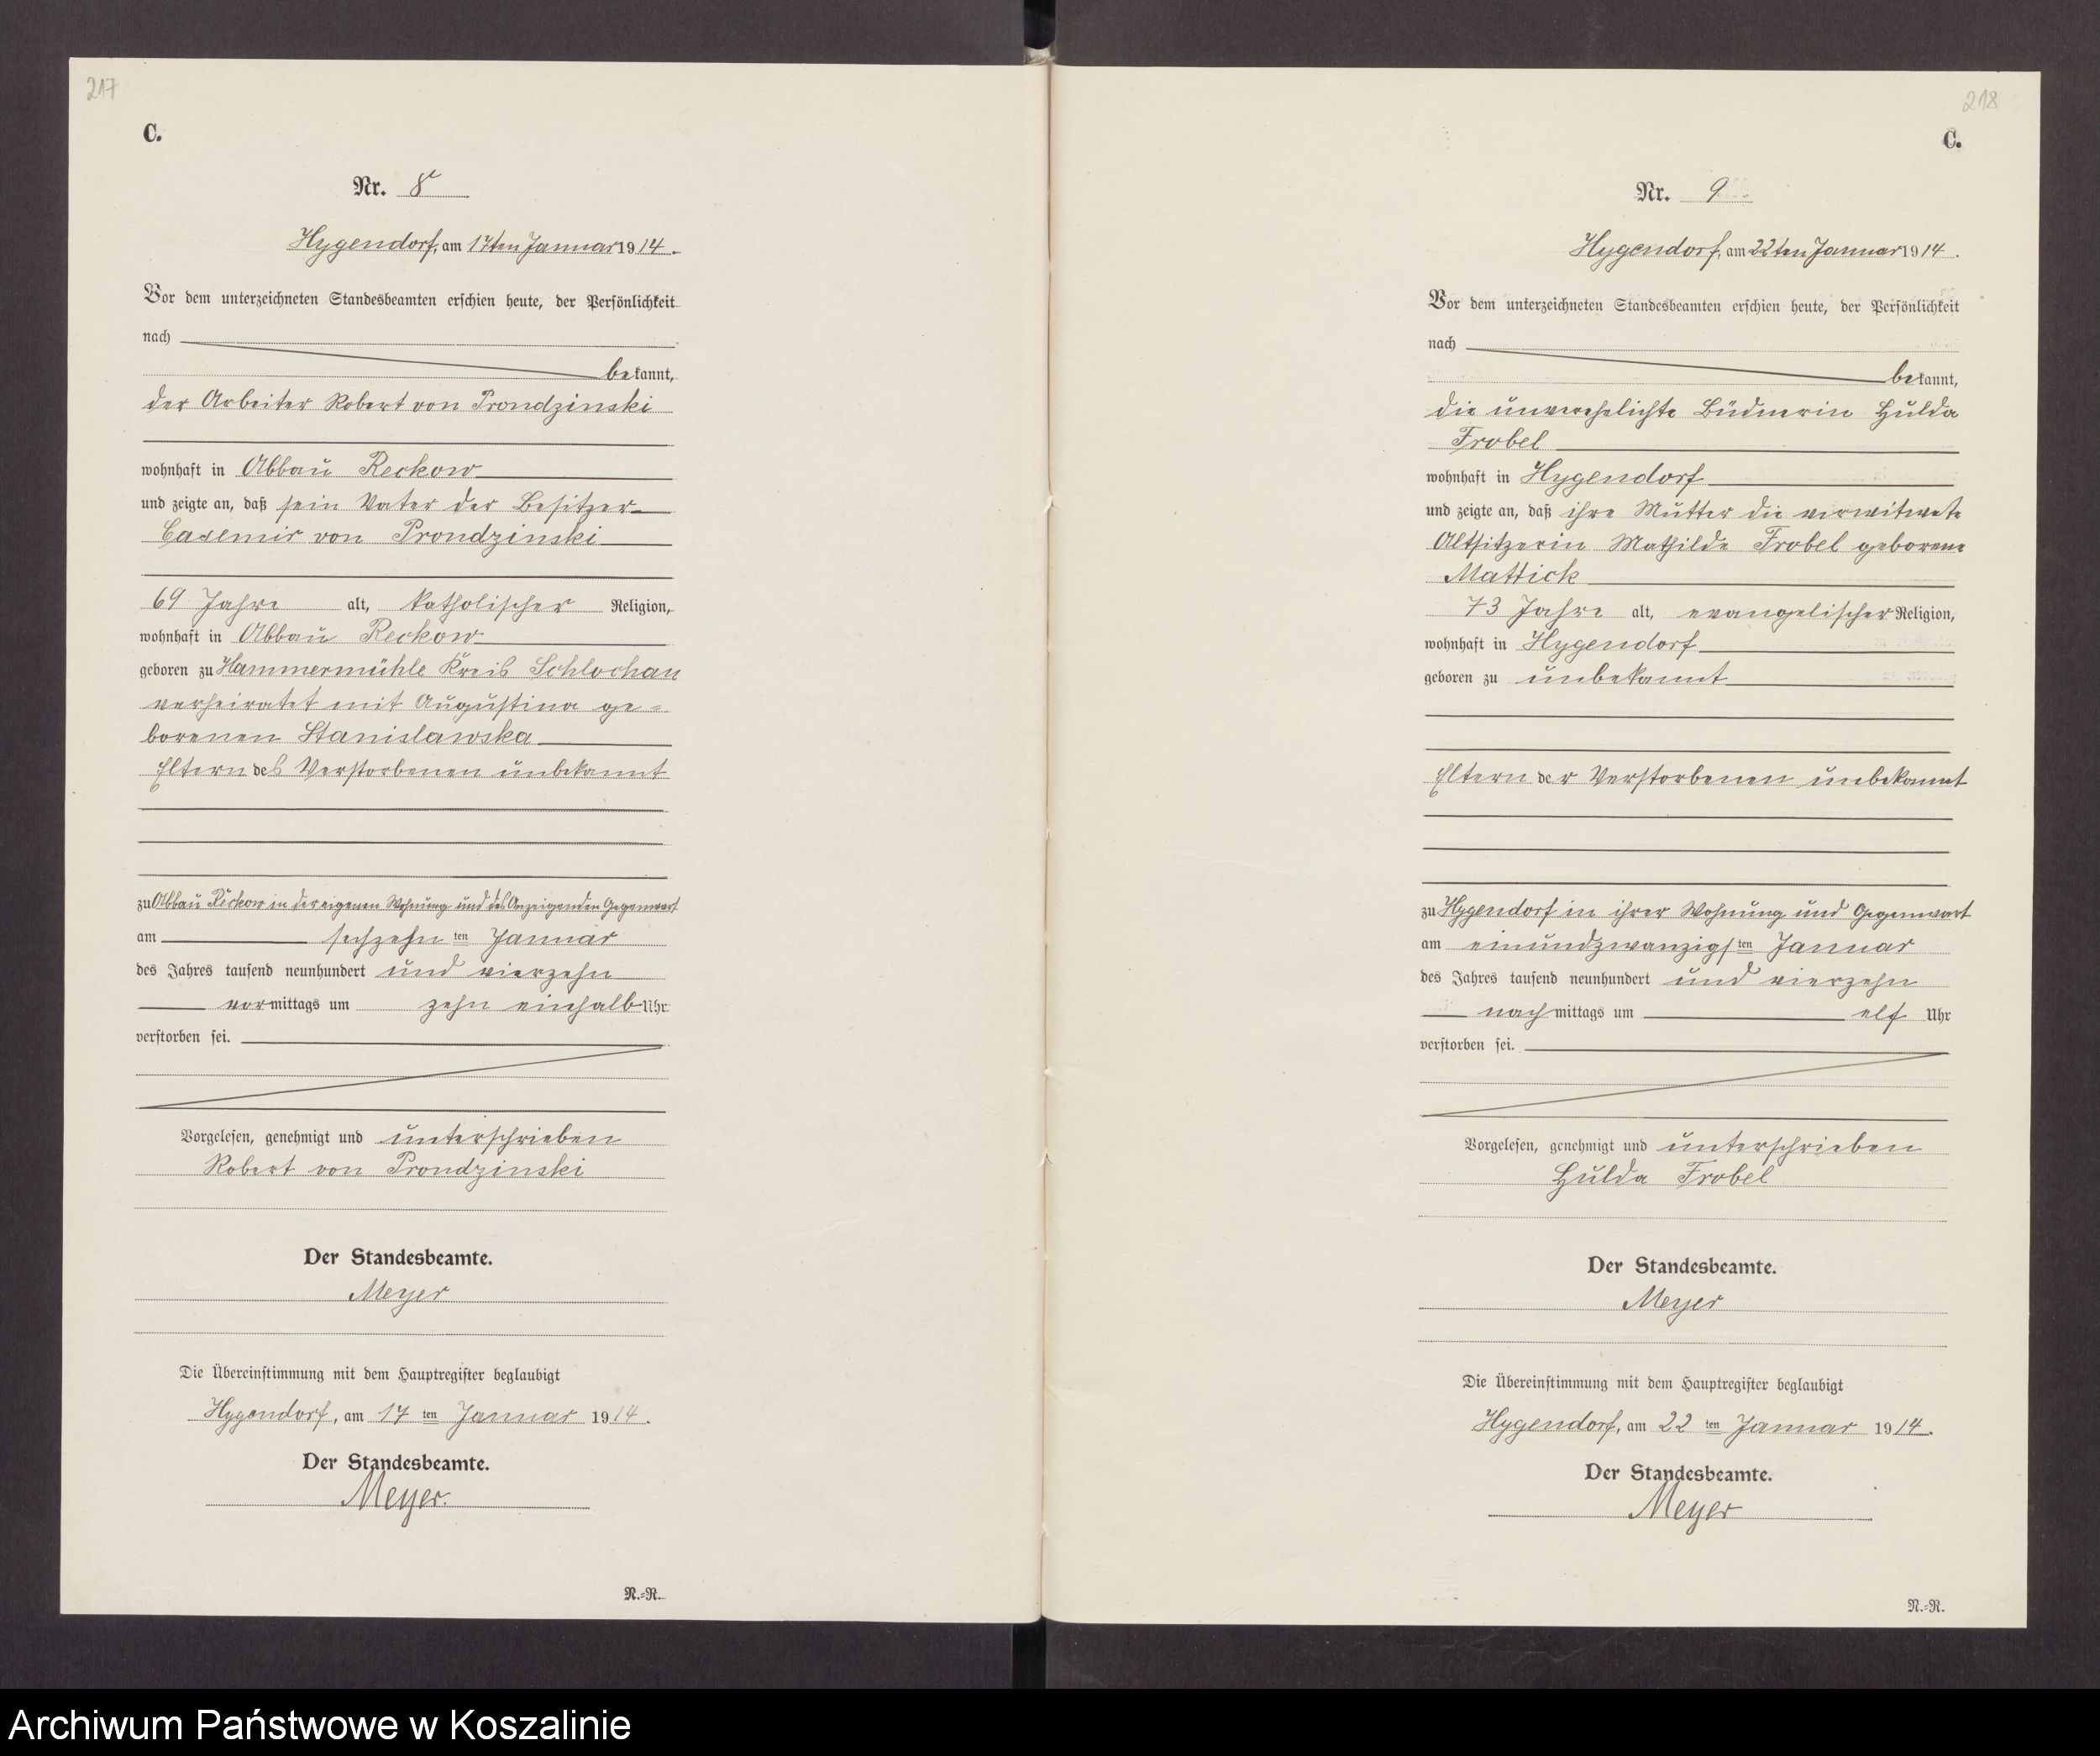 217
C.
Nr. 8
Hygendorf, am 17ten Januar 1914.
Vor dem unterzeichneten Standesbeamten erschien heute, der Persönlichkeit
nach
bekannt,
der Arbeiter Robert von Prondzinski
wohnhaft in Abbau Reckow
und zeigte an, daß sein Vater der Besitzer
Casemir von Prondzinski
69 Jahre alt, katholischer Religion,
wohnhaft in Abbau Reckow
geboren zu Hammermühle Kreis Schlochau
verheiratet mit Augustina ge=
borenen Stanislawska
Eltern des Verstorbenen unbekannt
zu Abbau Reckow in der eigenen Wohnung und des Anzeigenden Gegenwart
am sechzehn ten Januar
des Jahres tausend neunhundert und vierzehn
vormittags um zehn einhalb Uhr
verstorben sei.
Vorgelesen, genehmigt und unterschrieben
Robert von Prondzinski
Der Standesbeamte.
Meyer
Die Übereinstimmung mit dem Hauptregister beglaubigt
Hygendorf, am 17 ten Januar 1914.
Der Standesbeamte.
Meyer.
N.=R.
218
C.
Nr. 9
Hygendorf, am 22ten Januar 1914.
Vor dem unterzeichneten Standesbeamten erschien heute, der Persönlichkeit
nach
bekannt,
die unverehelichte Büdnerin Hulda
Frobel
wohnhaft in Hygendorf
und zeigte an, daß ihre Mutter die verwitwete
Altsitzerin Mathilde Frobel geborene
Mattick
73 Jahre alt, evangelischer Religion,
wohnhaft in Hygendorf
geboren zu unbekannt
Eltern der Verstorbenen unbekannt
zu Hygendorf in ihrer Wohnung und Gegenwart
am einundzwanzigsten Januar
des Jahres tausend neunhundert und vierzehn
nachmittags um elf Uhr
verstorben sei.
Vorgelesen, genehmigt und unterschrieben
Hulda Frobel
Der Standesbeamte.
Meyer
Die Übereinstimmung mit dem Hauptregister beglaubigt
Hygendorf, am 22 ten Januar 1914.
Der Standesbeamte.
Meyer
N.=R.
Archiwum Państwowe w Koszalinie